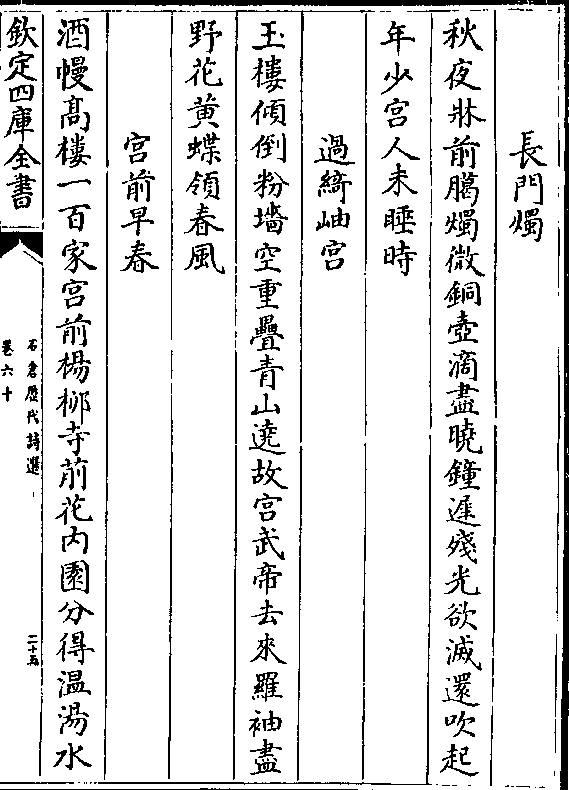 長門燭
秋夜牀前臈燭微銅壺滴盡曉鐘遲殘光欲滅還吹起
年少宫人未睡時
過綺岫宫
玉樓傾倒粉墻空重疊青山遶故宫武帝去來羅袖盡
野花黄蝶領春風
宫前早春
酒幔髙樓一百家宫前楊柳寺前花内園分得温湯水
欽定四庫全書
石倉歴代詩選
卷六十
二十五